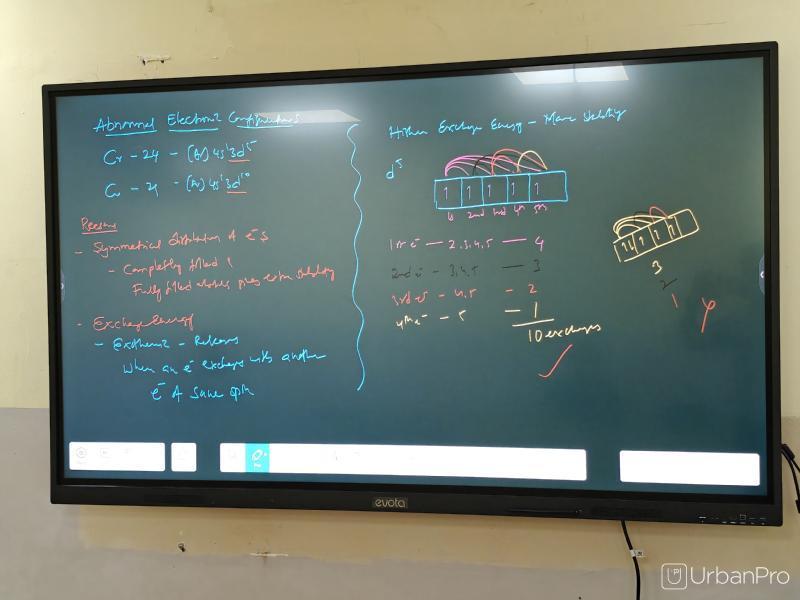 Abnormal Electronic Configurations
Cr - 24 - (Ar) 4s¹ 3d⁵
Cu - 29 - (Ar) 4s¹ 3d¹⁰
Reasons
- Symmetrical distribution of e⁻s
- Completely filled
Fully filled gives extra stability
- Exchange energy
- Exothermic - Releases
When an e⁻ exchanges with another
e⁻ of same spin
Higher Exchange Energy - More stability
d⁵
1 1 1 1 1
1s 2nd 3rd 4th 5th
1st e⁻ - 2,3,4,5 - 4
2nd e⁻ - 3,4,5 - 3
3rd e⁻ - 4,5 - 2
4th e⁻ - 5 - 1
10 exchanges
3
2
1
evota
UrbanPro